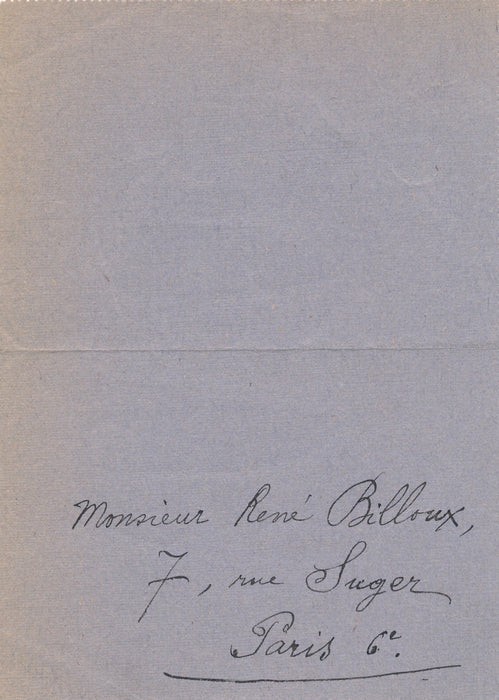 Monsieur René Billoux,
7, rue Suger
Paris 6e.